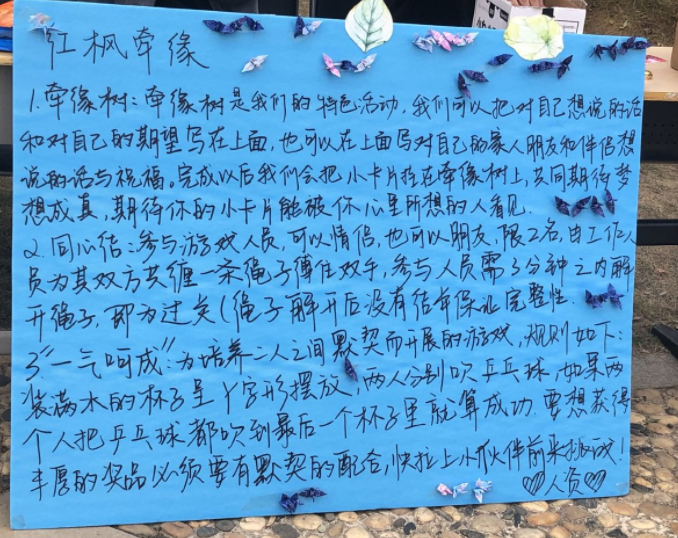 红枫牵缘
1.牵缘树：牵缘树是我们的特色活动，我们可以把对自己想说的话
和对自己的期望写在上面，也可以在上面写对自己的家人朋友和伴侣想
说的话与祝福。完成以后我们会把小卡片挂在牵缘树上，共同期待梦
想成真，期待你的小卡片能被你心里所想的人看见.
2.同心结：参与游戏人员，可以情侣，也可以朋友，限2名，由工作人
员为其双方共缠一条绳子缚住双手，参与人员需3分钟之内解
开绳子，即为过关（绳子解开后没有结并保证完整性.
3"一气呵成"：为培养二人之间默契而开展的游戏，规则如下：
装满水的杯子呈丫字形摆放，两人分别吹乒乓球，如果两
个人把乒乓球都吹到最后一个杯子里就算成功.要想获得
丰厚的奖品必须要有默契的配合，快拉上小伙伴前来挑战！
♡♡人资♡♡